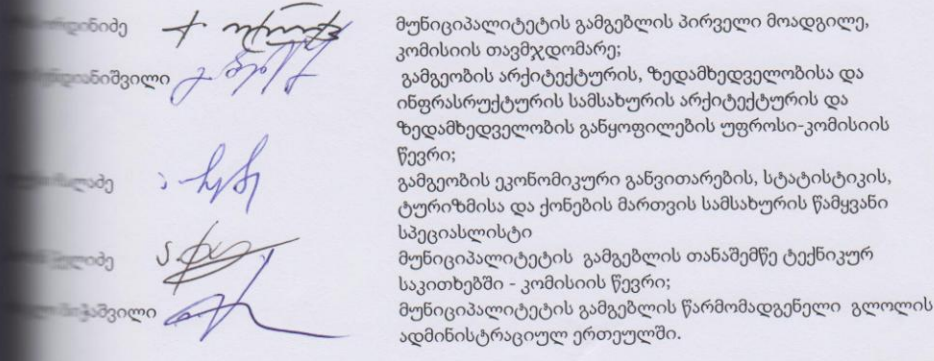 მუნიციპალიტეტის გამგებლის პირველი მოადგილე,
კომისიის თავმჯდომარე;
გამგეობის არქიტექტურის, ზედამხედველობისა და
ინფრასრუქტურის სამსახურის არქიტექტურის და
ზედამხედველობის განყოფილების უფროსი-კომისიის
წევრი;
გამგეობის ეკონომიკური განვითარების, სტატისტიკის,
ტურიზმისა და ქონების მართვის სამსახურის წამყვანი
სპეციასლისტი
მუნიციპალიტეტის გამგებლის თანაშემწე ტექნიკურ
საკითხებში - კომისიის წევრი;
მუნიციპალიტეტის გამგებლის წარმომადგენელი გლოლის
ადმინისტრაციულ ერთეულში.